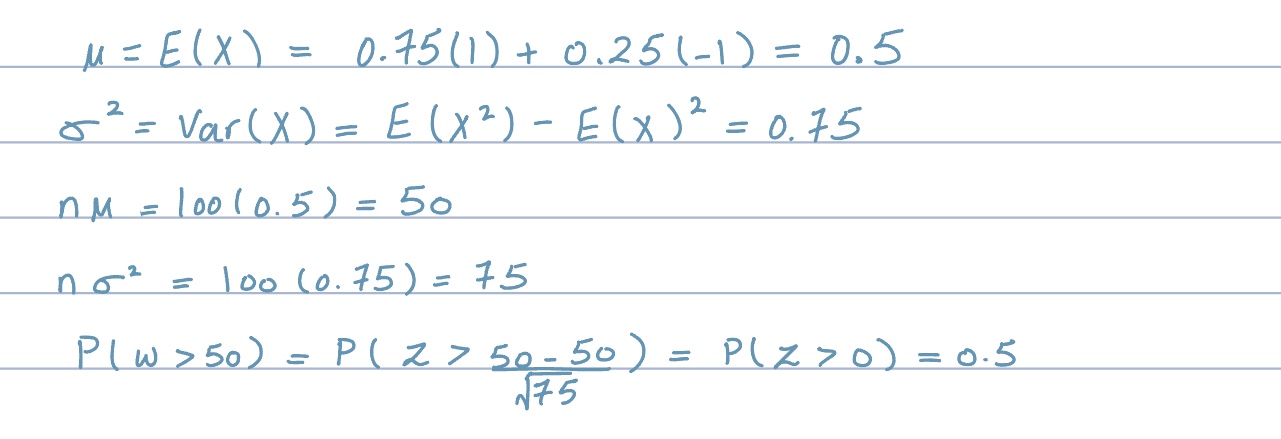 μ = E(X) = 0.75(1) + 0.25(-1) = 0.5
σ² = Var(X) = E(X²) - E(X)² = 0.75
nμ = 100(0.5) = 50
nσ² = 100(0.75) = 75
P(W > 50) = P(Z > (50 - 50)/√75) = P(Z > 0) = 0.5